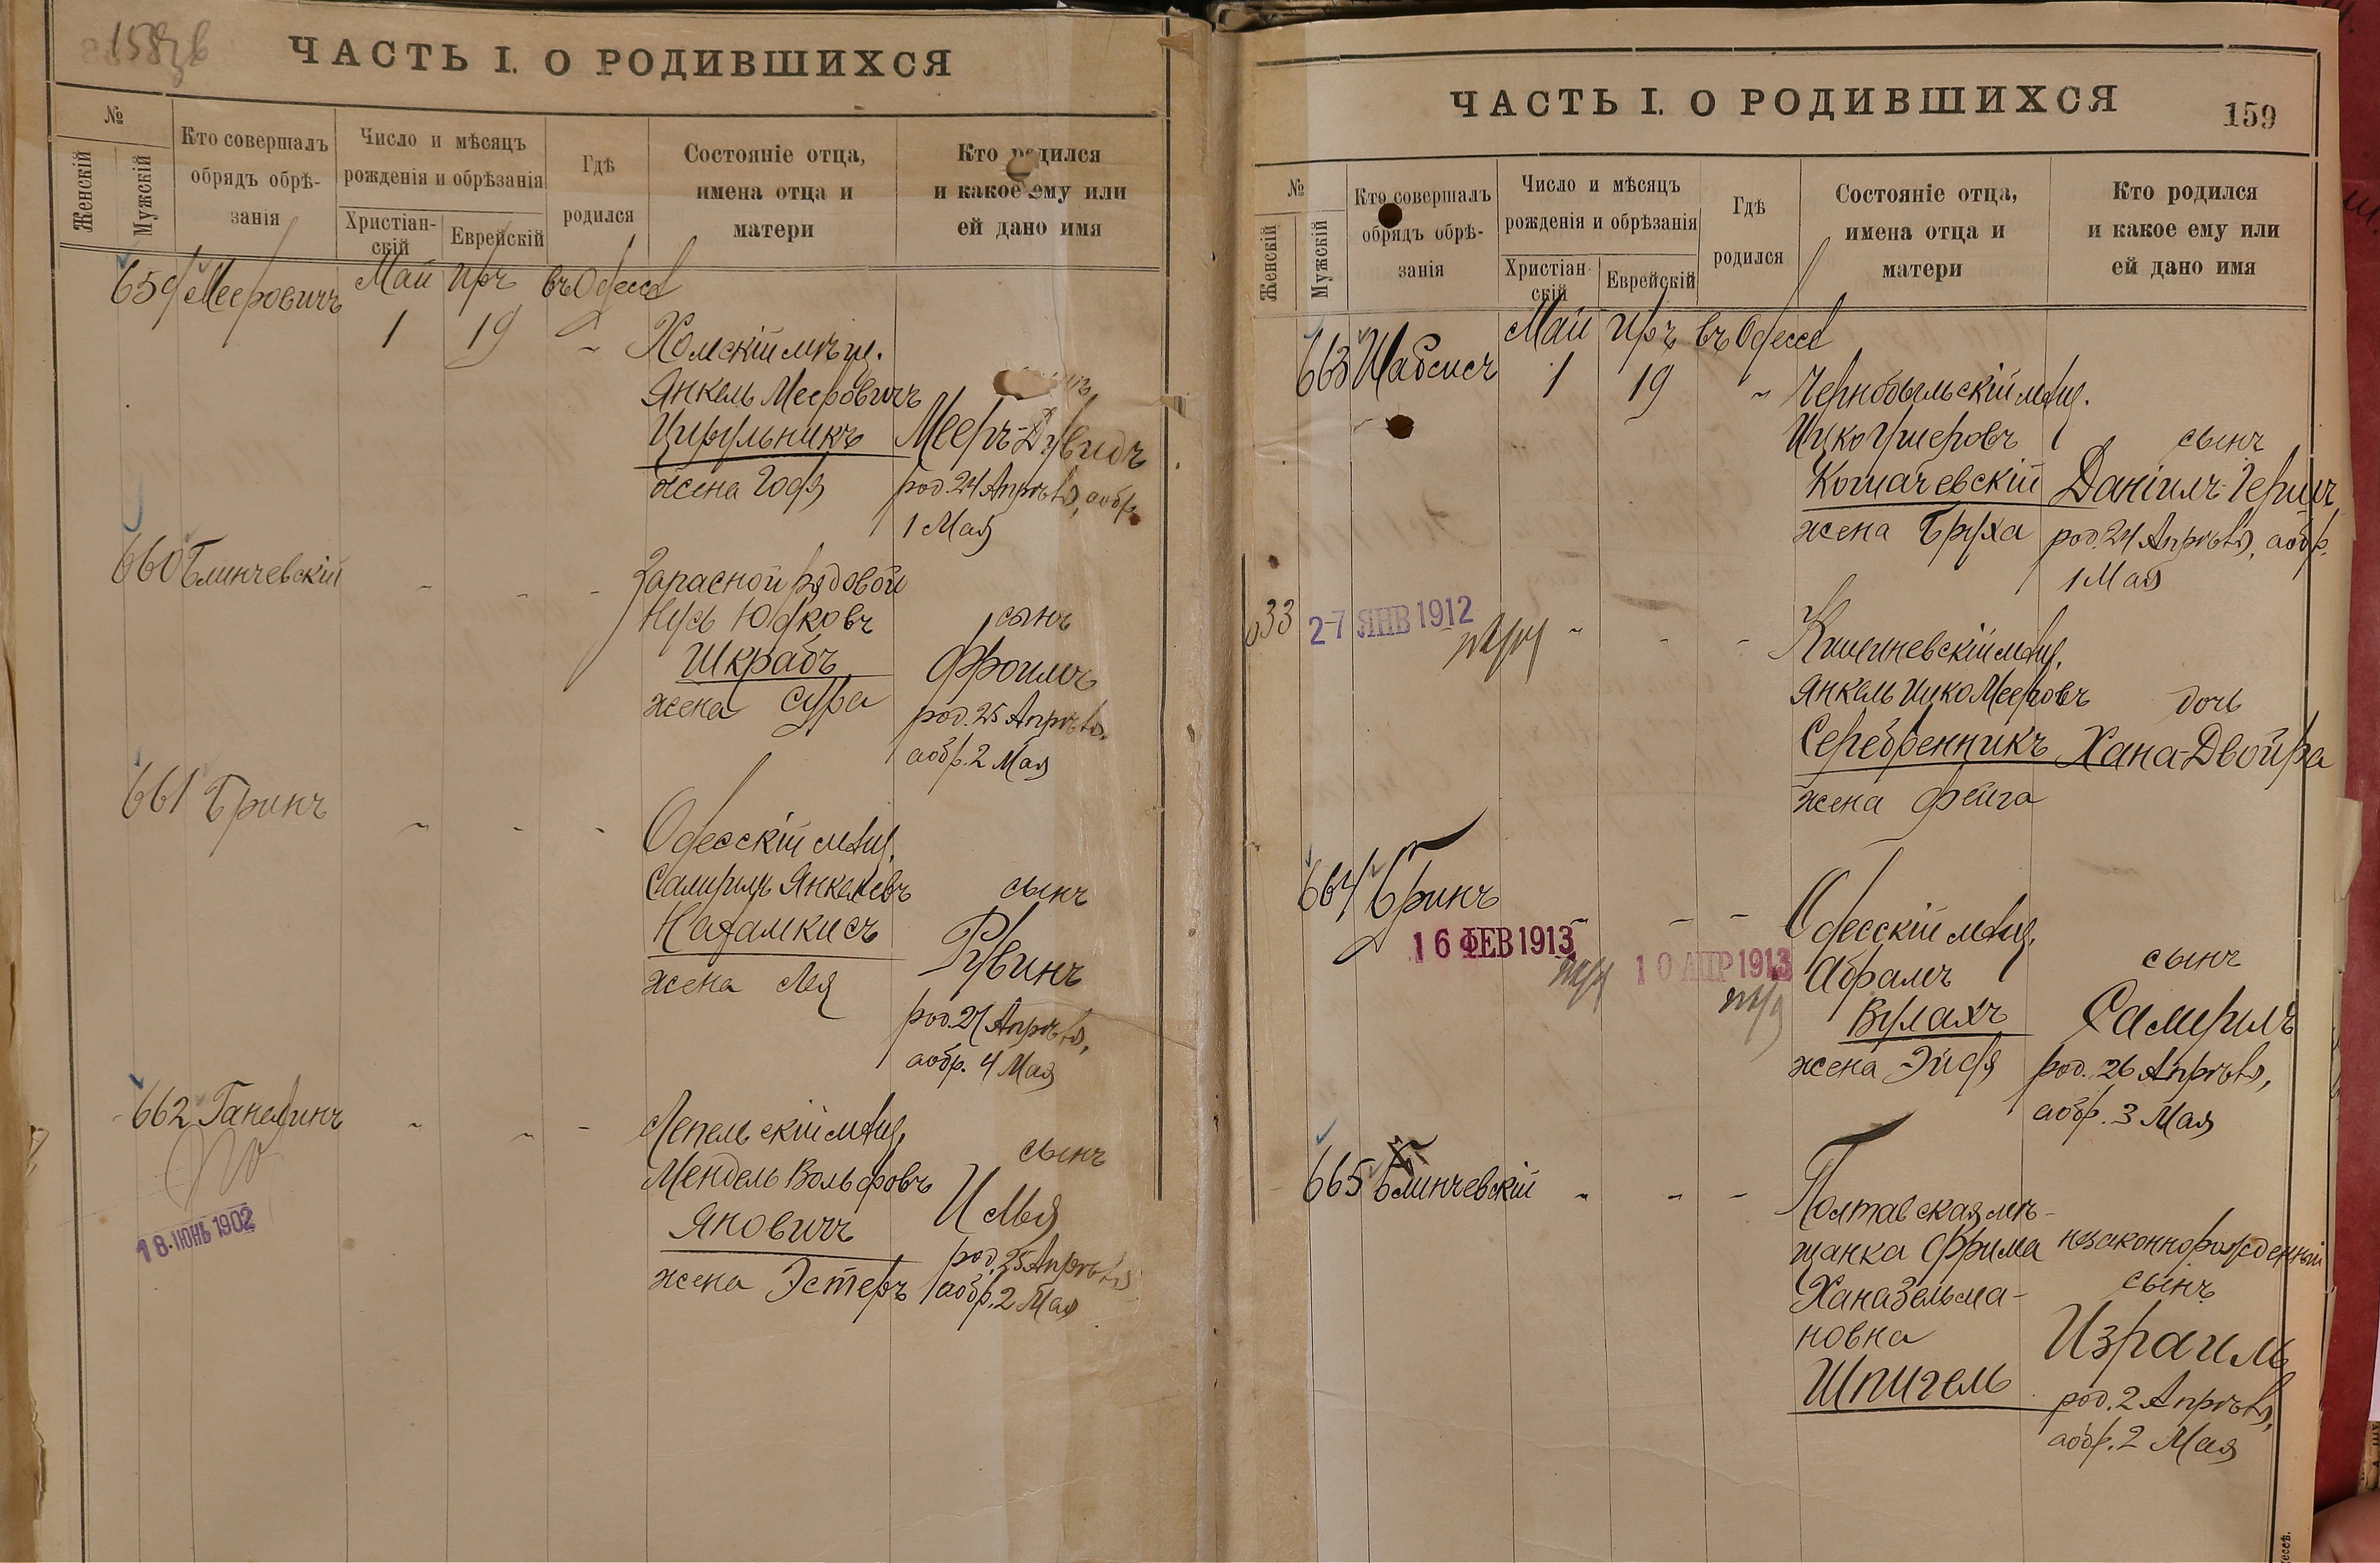 ЧАСТЬ I. О РОДИВШИХСЯ
№
Женскій
Мужскій
Кто совершалъ
обрядъ обрѣ-
занія
Число и мѣсяцъ
рожденія и обрѣзанія
Христіан-
скій
Еврейскій
Гдѣ
родился
Состояніе отца,
имена отца и
матери
Кто родился
и какое ему или
ей дано имя
659 Мееровичъ Май Иръ въ Одессѣ
1 19
Холмскій мѣщ.
Янкель Мееровичъ
Цирульникъ Мееръ-Дувидъ
жена Годя род. 24 Апрѣля, а обр.
1 Мая
660 Блинчевскій
Запасной рядовой
Нусь Юдковъ сынъ
Шкрабъ Фроимъ
жена Сура род. 25 Апрѣля,
а обр. 2 Мая
661 Бринъ
Одесскій мѣщ.
Самуилъ Янкелевъ сынъ
Рувинъ
жена Лея
род. 27 Апрѣля,
а обр. 4 Мая
662
Лепельскій мѣщ.
сынъ
Мендель Вольфовъ
Илья
Яновичъ
род. 25 Апрѣля
жена Эстеръ а обр. 2 Мая
18 ИЮНЬ 1902
ЧАСТЬ I. О РОДИВШИХСЯ
159
№
Женскій
Мужскій
Кто совершалъ
обрядъ обрѣ-
занія
Число и мѣсяцъ
рожденія и обрѣзанія
Христіан-
скій
Еврейскій
Гдѣ
родился
Состояніе отца,
имена отца и
матери
Кто родился
и какое ему или
ей дано имя
663 Шабсисъ Май Иръ въ Одессѣ
1 19
Чернобыльскій мѣщ.
Ицко Ушеровъ сынъ
Даніилъ-Гершъ
жена Бруха род. 24 Апрѣля, а обр.
1 Мая
33
27 ЯНВ 1912
Кишиневскій мѣщ.
Янкель Ицко Мееровъ дочь
Серебренникъ Хана-Двойра
жена Фейга
664 Бринъ
16 ФЕВ 1913
10 АПР 1913
Одесскій мѣщ.
Абрамъ сынъ
Вулахъ Самуилъ
жена Эйдя род. 26 Апрѣля,
а обр. 3 Мая
665 Блинчевскій
Полтавская мѣ-
щанка Фрима незаконнорожденный
Хана Зельма- сынъ
новна Израиль
Шпигель
род. 2 Апрѣля,
а обр. 2 Мая